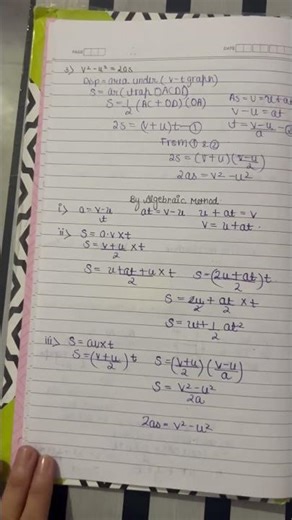 PAGE DATE
3) v² - u² = 2as
Disp = area under (v-t graph)
S = ar(trap OACD)
S = 1/2 (AC + OD)(OA)
2S = (v + u)t — ①
As v = u + at
v - u = at
t = v - u / a — ②
From ① & ②
2S = (v + u)(v - u / a)
2as = v² - u²
By Algebraic Method
i) a = v - u / t at = v - u u + at = v
v = u + at.
ii) S = a.v x t
S = v + u / 2 x t
S = u + at + u / 2 x t S = (2u + at / 2) t
S = 2u / 2 + at / 2 x t
S = ut + 1/2 at²
iii) S = av x t
S = (v + u / 2) t S = (v + u / 2)(v - u / a)
S = v² - u² / 2a
2as = v² - u²